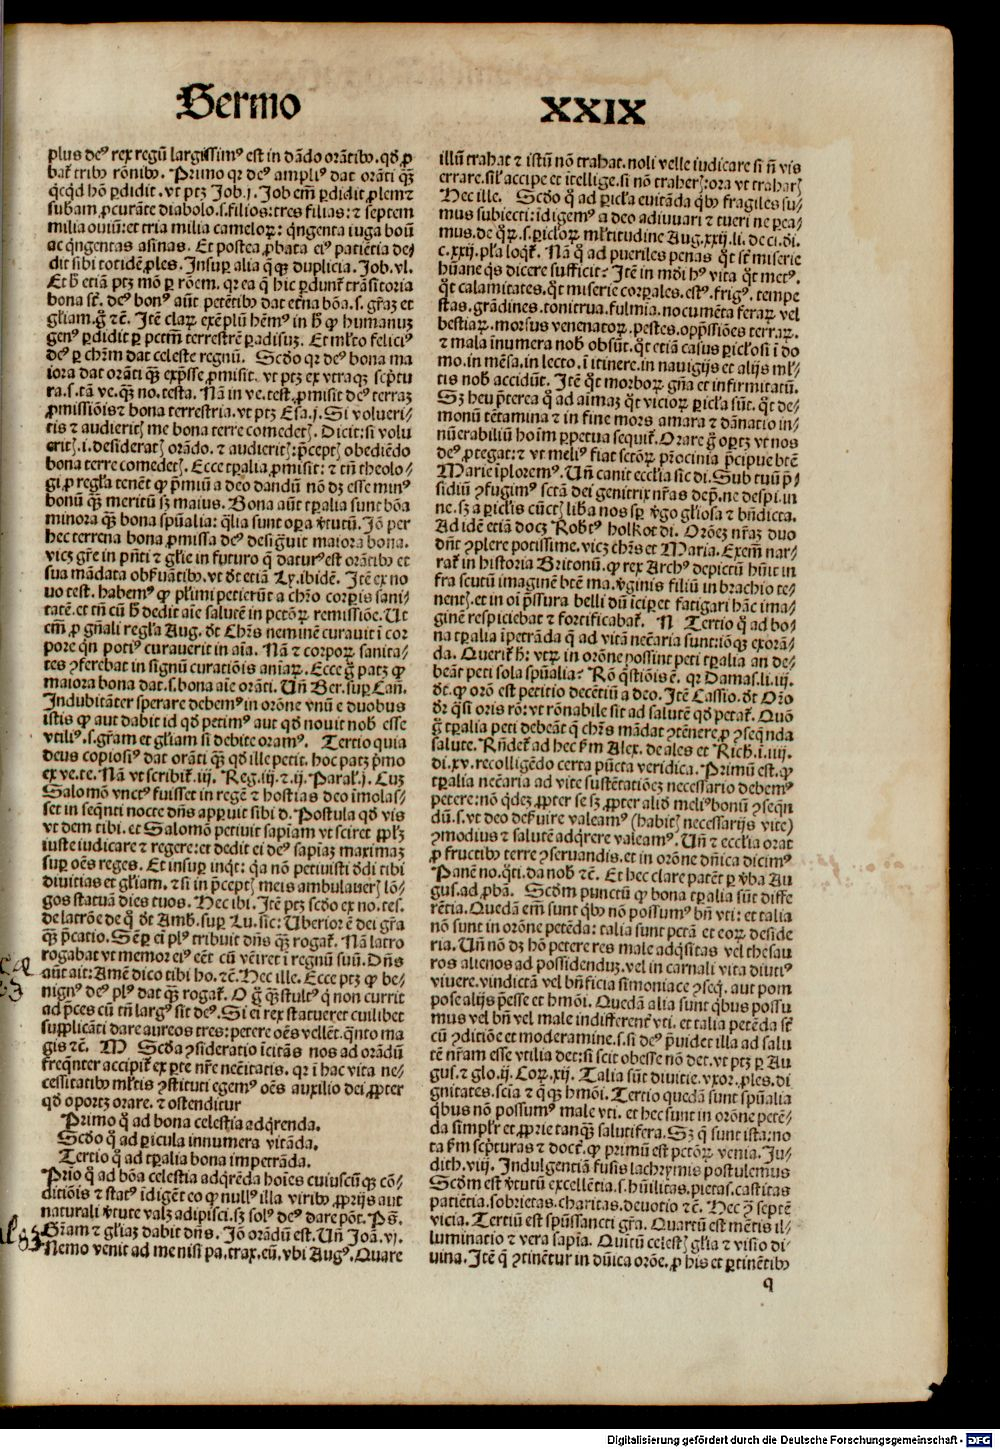 Sermo
XXIX
plus deꝰ rex regū largissimꝰ est in dādo orātibꝰ. qđ ꝓ
bat̄ tribꝰ rōnibꝰ. Primo qr deꝰ ampliꝰ dat orāti q̄ꝫ
qcqd hō ꝑdidit. vt ptꝫ Job.j. Job em̄ ꝑdidit ꝓlem ⁊
subam ꝓcurāte diabolo .s. filios: tres filias: ⁊ septem
milia ouiū: et tria milia cameloꝝ: qngenta iuga boū
ac qngentas asinas. Et postea ꝓbata eiꝰ patiētia de⸗
dit sibi totidē ꝓles. Insuꝑ alia qꝫ duplicia. Job.vl.
Et ħ etiā ptꝫ mō ꝑ rōem. qr ea q̄ hic ꝑdunt̄ trāsitoria
bona st̄. deꝰ bonꝰ aūt petētibꝰ dat et̄na bōa .s. gr̄aꝫ et
gl̄iam. g̊ ⁊c̄. Itē claꝝ exēplū hēmꝰ in ħ ꝙ humanuꝫ
genꝰ ꝑdidit ꝑ petm̄ terrestrē ꝑadisuꝫ. Et ml̄to feliciꝰ
deꝰ ꝑ chm̄ dat celeste regnū. Scd̄o qr deꝰ bona ma
iora dat orāti q̄ꝫ exp̄sse ꝓmisit. vt ptꝫ ex vtraqꝫ sc̄ptu
ra .s. tā ve. q̄ꝫ no. testa. Nā in ve. test. ꝓmisit deꝰ terraꝫ
ꝓmissiōis ⁊ bona terrestria. vt ptꝫ Esa.j. Si volueri⸗
tis ⁊ audierit̄ me bona terre comedet̄. Dicit: si volu
erit̄ .i. desiderat̄ orādo. ⁊ audierit̄: p̄cept̄ obediēdo
bona terre comedet̄. Ecce tꝑalia ꝓmisit: ⁊ tn̄ theolo⸗
gi ꝓ regl̄a tenēt ꝙ p̄miū a deo dandū nō dꝫ esse minꝰ
bonū q̄ꝫ meritū sꝫ maius. Bona aūt tꝑalia sunt bōa
minora q̄ꝫ bona spūalia: q̄lia sunt oꝑa v̄tutū. Iō per
hec terrena bona ꝓmissa deꝰ desig̊uit maiora bona.
vicꝫ gr̄e in pn̄ti ⁊ gl̄ie in futuro q̄ daturꝰ est orātibꝰ et
sua mādata obs̄uātibꝰ. vt d̄t etiā Ly. ibidē. Itē ex no
uo test. habemꝰ ꝙ pl̄imi petierūt a chr̄o corꝑis sani⸗
tatē. et tn̄ cū ħ dedit aīe salutē in petōꝝ remissiōe. Ut
em̄ ꝓ gn̄ali regl̄a Aug. d̄t Chr̄s neminē curauit ī cor
pore qn potiꝰ curauerit in aīa. Nā ⁊ corpoꝝ sanita⸗
tes ꝯferebat in signū curatiōis aīaꝝ. Ecce g̊ patꝫ ꝙ
maiora bona dat .s. bona aīe orāti. Un̄ Ber. suꝑ Can̄.
Indubitāter sperare debemꝰ in orōne vnū e duobus
istis ꝙ aut dabit id qđ petimꝰ aut qđ nouit nob̄ esse
vtiliꝰ .s. gr̄am et gl̄iam si debite oramꝰ. Tertio quia
deus copiosiꝰ dat orāti q̄ꝫ qđ ille petit. hoc patꝫ p̄mo
ex ve. te. Nā vt scribit̄ .iij. Reg.iij. ⁊ .ij. Paral̄.j. Cuꝫ
Salomō vnctꝰ fuisset in regē ⁊ hostias deo īmolas⸗
set in seqn̄ti nocte dn̄s apꝑuit sibi d. Postula qđ vis
vt dem tibi. et Salomō petiuit sapīam vt sciret ꝓplꝫ
iuste iudicare ⁊ regere: et dedit ei deꝰ sapīaꝫ maximaꝫ
suꝑ oēs reges. Et insuꝑ inqt: qa nō petiuisti ōdi tibi
diuitias et gl̄iam. ⁊ si in p̄cept̄ meis ambulauer̄ lō⸗
gos statuā dies tuos. Hec ibi. Itē ptꝫ scd̄o ex no. tes.
de latrōe de q̊ d̄t Amb. suꝑ Lu. sic: Uberior ē dei gr̄a
q̄ꝫ p̄catio. Sēꝑ ei plꝰ tribuit dn̄s q̄ꝫ rogat̄. Nā latro
rogabat vt memor eiꝰ eēt cū vēiret ī regnū suū. Dn̄s
aūt ait: Amē dico tibi ho. ⁊c̄. Hec ille. Ecce ptꝫ ꝙ be⸗
nignꝰ deꝰ plꝰ dat q̄ꝫ rogat̄. O g̊ q̄ꝫ stultꝰ q̊ non currit
ad p̄ces cū tn̄ largꝰ sit deꝰ. Si ei rex statueret cuilibet
supplicāti dare aureos tres: petere oēs vellēt. q̄nto ma
gis ⁊c̄. M Scd̄a ꝯsideratio īcitās nos ad orādū
freqn̄ter accipit̄ ex ꝑte nr̄e necītatis. qr ī hac vita ne⸗
cessitatibꝰ ml̄tis ꝯstituti egemꝰ oēs auxilio dei ꝓpter
qđ oportꝫ orare. ⁊ ostenditur
Primo q̊ ad bona celestia adq̄renda.
Scd̄o q̊ ad ꝑicula innumera vitāda.
Tertio q̊ ad tꝑalia bona impetrāda.
Prīo q̊ ad bōa celestia adq̄rēda hoīes cuiuscūqꝫ cō⸗
ditiōis ⁊ statꝰ īdigēt eo ꝙ nullꝰ illa viribꝰ ꝓprijs aut
naturali v̄tute valꝫ adipisci. sꝫ solꝰ deꝰ dare pōt. Ps̄.
Gr̄am ⁊ gl̄iaꝫ dabit dn̄s. Iō orādū est. Un̄ Joā.vj.
Nemo venit ad me nisi pa. trax. eū. vbi Augꝰ. Quare
illū trahat ⁊ istū nō trahat. noli velle iudicare si n̄ vis
errare. sil̄ accipe et ītellige. si nō traher̄: ora vt trahar̄
Hec ille. Scd̄o q̊ ad ꝑicl̄a euitāda qibꝰ fragiles su⸗
mus subiecti: īdigemꝰ a deo adiuuari ⁊ tueri ne ꝑea⸗
mus. de qꝝ .s. ꝑicl̄oꝝ ml̄titudine Aug. xxij. li. de ci. di.
c. xxij. pl̄a loqt̄. Nā q̊ ad pueriles penas q̄t st̄ miserie
hūane qs dicere sufficit? Itē in mōi hꝰ vita q̄t metꝰ.
q̄t calamitates. q̄t miserie corꝑales. estꝰ. frigꝰ. tempe
stas. grādines. tonitrua. fulmia. nocumēta feraꝝ vel
bestiaꝝ. morsus venenatoꝝ. pestes. opp̄ssiōes terraꝝ.
⁊ mala īnumera nob̄ obsūt. q̄t etiā casus ꝑicl̄osi ī do
mo. in mēsa. in lecto. ī itinere. in nauigijs et alijs ml̄⸗
tis nob̄ accidūt. Itē q̄t morboꝝ gn̄a et infirmitatū.
Sꝫ heu p̄terea q̊ ad aīmaꝫ q̄t vicioꝝ ꝑicl̄a sūt. q̄t de⸗
monū tētamina ⁊ in fine mors amara ⁊ dānatio in⸗
nūerabiliū hoīm ꝑpetua sequit̄. Orare g̊ oꝑtꝫ vt nos
deꝰ ꝓtegat: ⁊ vt meliꝰ fiat sctōꝝ pr̄ocinia p̄cipue btē
Marie īploremꝰ. Un̄ canit eccl̄ia sic di. Sub tuū p̄⸗
sidiū ꝯfugimꝰ sctā dei genitrix nr̄as dep̄. ne despi. in
ne. sꝫ a ꝑiclis cūct̄ lib̄a nos sꝑ v̄go gl̄iosa ⁊ bn̄dicta.
Ad idē etiā docꝫ Robtꝰ holkot di. Orōeꝫ nr̄aꝫ duo
dn̄t ꝯplere potissime. vicꝫ chr̄s et Maria. Exem̄ nar⸗
rat̄ in historia Britonū. ꝙ rex Archꝰ depictū hūit in
fra scutū imaginē btē ma. v̄ginis filiū in brachio te⸗
nent̄. et in oī p̄ssura belli dū īciꝑet fatigari hāc ima⸗
ginē respiciebat ⁊ fortificabat̄. N Tertio q̊ ad bo⸗
na tꝑalia īpetrāda q̄ ad vitā necc̄aria sunt: iōqꝫ exorā⸗
da. Querit̄ ħ: vtꝝ in orōne possint peti tꝑalia an de⸗
beāt peti sola spūalia? Rō q̄stiōis ē. qr Damas. li. iij.
d̄t. ꝙ orō est petitio decētiū a deo. Itē Cassio. d̄t Orō
d̄r q̄si oris rō: vt rōnabile sit ad salutē qđ petat̄. Quō
g̊ tꝑalia peti debeāt q̄ chr̄s mādat ꝯtēnere ꝓ ꝯseq̄nda
salute. Rn̄det̄ ad hec s̄m Alex. de ales et Rich. ī .iiij.
di. xv. recolligēdo certa pūcta veridica. Primū est. ꝙ
tꝑalia necc̄aria ad vite sustētatiōeꝫ necessario debemꝰ
petere: nō q̄deꝫ ꝓpter se sꝫ ꝓpter aliđ meliꝰ bonū ꝯseqn̄
dū .s. vt deo des̄uire valeamꝰ (habit̄ necessarijs vite)
ꝯmodius ⁊ salutē adq̄rere valeamꝰ. Un̄ ⁊ eccl̄ia orat
ꝓ fructibꝰ terre ꝯseruandis. et in orōne dn̄ica dicimꝰ
Panē no. qti. da nob̄ ⁊c̄. Et hec clare patēt ꝑ v̄ba Au
gus. ad ꝓbā. Scd̄m punctū ꝙ bona tꝑalia sūt diffe
rētia. Quedā em̄ sunt qibꝰ nō possumꝰ bn̄ vti: et talia
nō sunt in orōne petēda: talia sunt petā et eoꝝ deside
ria. Un̄ nō dꝫ hō petere res male adq̄sitas vel thesau
ros alienos ad possidenduꝫ. vel in carnali vita diutiꝰ
viuere. vindictā vel bn̄ficia simoniace ꝯseq. aut pom
pose alijs p̄esse et hmōi. Quedā alia sunt qibus possu
mus vel bn̄ vel male indifferent̄ vti. et talia petēda st̄
cū ꝯditiōe et moderamine .s. si deꝰ p̄uidet illa ad salu
tē nr̄am esse vtilia det: si scit obesse nō det. vt ptꝫ ꝑ Au
gus. ⁊ glo. ij. Coꝝ. xij. Talia sūt diuitie. vxor. ꝓles. di
gnitates. scīa ⁊ q̄qꝫ hmōi. Tertio quedā sunt spūalia
qibus nō possumꝰ male vti. et hec sunt in orōne petē⸗
da simpl̄r et ꝓprie tanq̄ꝫ salutifera. Sꝫ q̄ sunt ista: no
ta s̄m sc̄pturas ⁊ doct̄. ꝙ primū est petōꝝ venia. Ju⸗
dith. viij. Indulgentiā fusis lachrymis postulemus
Scd̄m est v̄tutū excellētia .s. hūilitas. pietas. castitas
patiētia. sobrietas. charitas. deuotio ⁊c̄. Hec ꝯ̄ septē
vicia. Tertiū est spūssancti gr̄a. Quartū est mētis il⸗
luminatio ⁊ vera sapīa. Quītū celest̄ gl̄ia ⁊ visio di⸗
uina. Itē q̄ ꝯtinētur in dn̄ica orōe. ꝓ his et ꝑtinētibꝰ
q
Digitalisierung gefördert durch die Deutsche Forschungsgemeinschaft - DFG